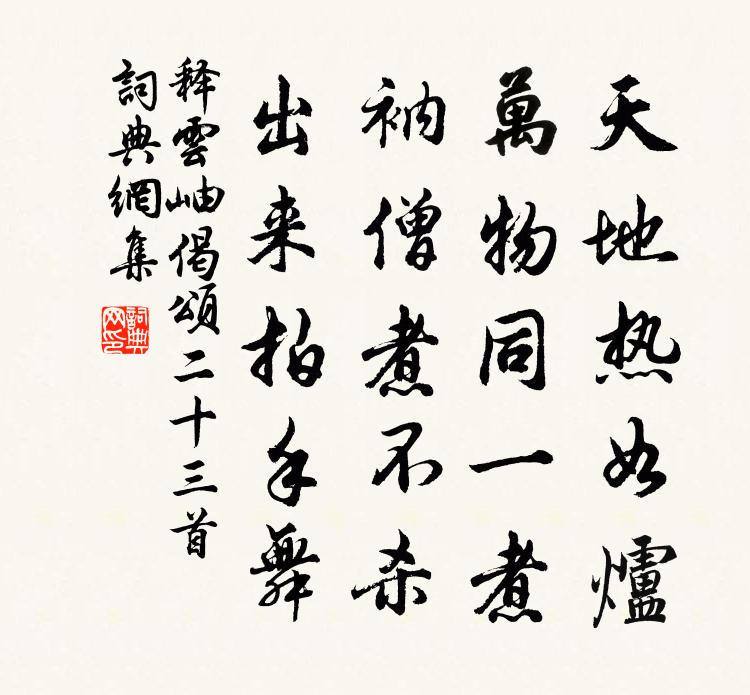 天地热如爐
萬物同一煮
衲僧煮不杀
出来拍手舞
释雲岫偈頌二十三首
詞典網集
詞典网印